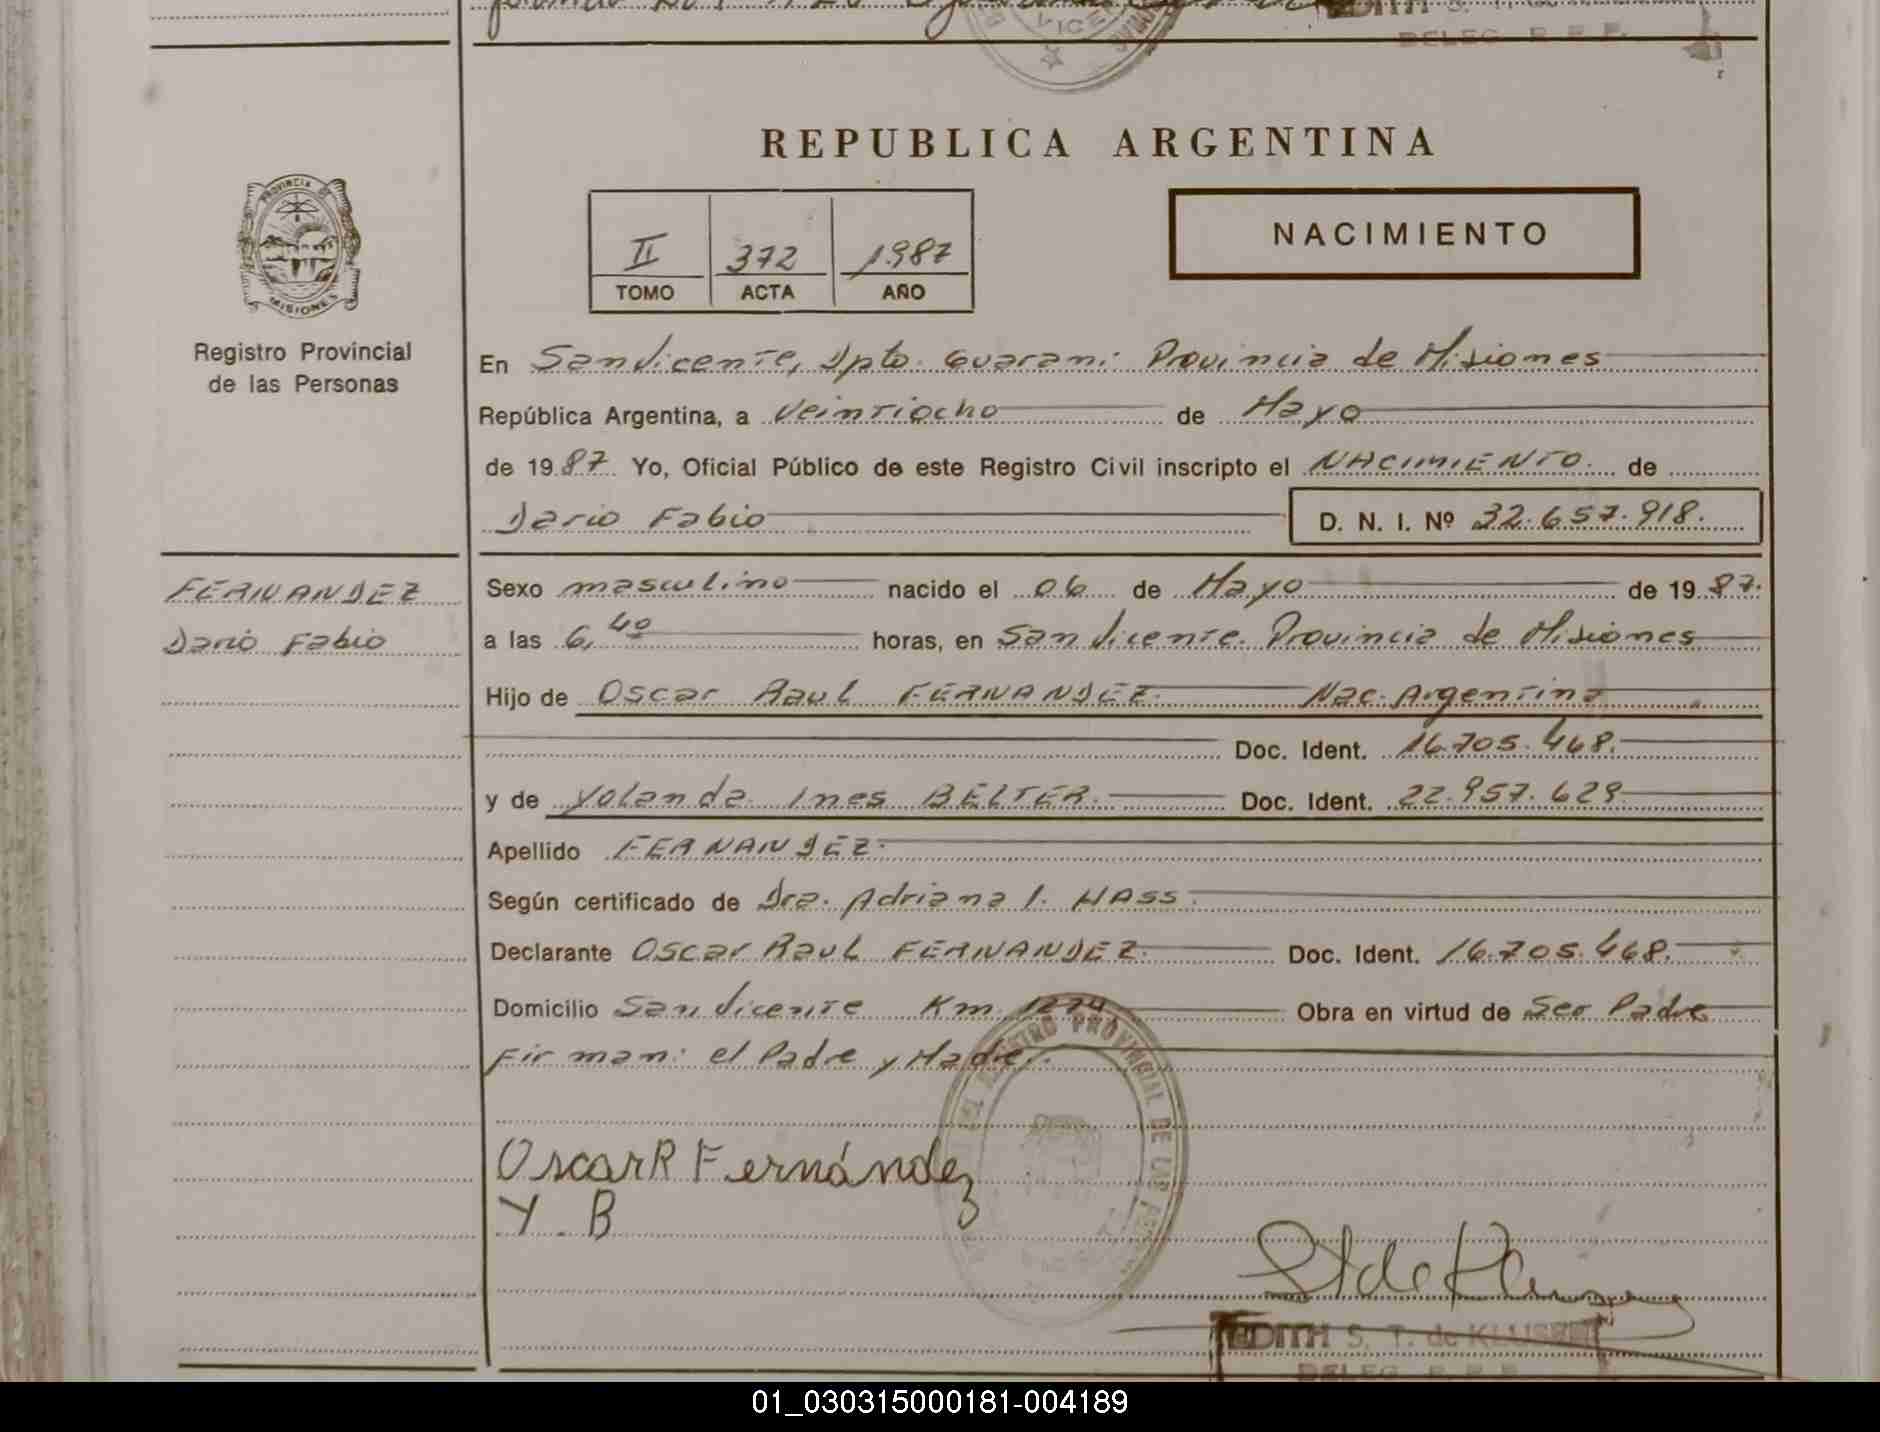 REPUBLICA ARGENTINA
PROVINCIA DE
MISIONES
Registro Provincial
de las Personas
II 372 1987
TOMO ACTA AÑO
NACIMIENTO
En San Vicente, Dpto. Guarani Provincia de Misiones
República Argentina, a Veintiocho de Mayo
de 1987 Yo, Oficial Público de este Registro Civil inscripto el NACIMIENTO de
Dario Fabio D. N. I. Nº 32.657.918.
FERNANDEZ
Dario Fabio
Sexo masculino nacido el 06 de Mayo de 1987.
a las 6,40 horas, en San Vicente. Provincia de Misiones
Hijo de Oscar Raul FERNANDEZ. Nac. Argentina
Doc. Ident. 16.705.468.
y de Yolanda Ines BELTER. Doc. Ident. 22.957.629.
Apellido FERNANDEZ.
Según certificado de Dra. Adriana I. HASS.
Declarante Oscar Raul FERNANDEZ. Doc. Ident. 16.705.468.
Domicilio San Vicente Km. 1274 Obra en virtud de Ser Padre
Firman: el Padre y Madre.
REGISTRO PROVINCIAL DE LAS
Oscar R Fernández
Y. B
EDITH S. T. de
DELEG. R. P. P.
01_030315000181-004189